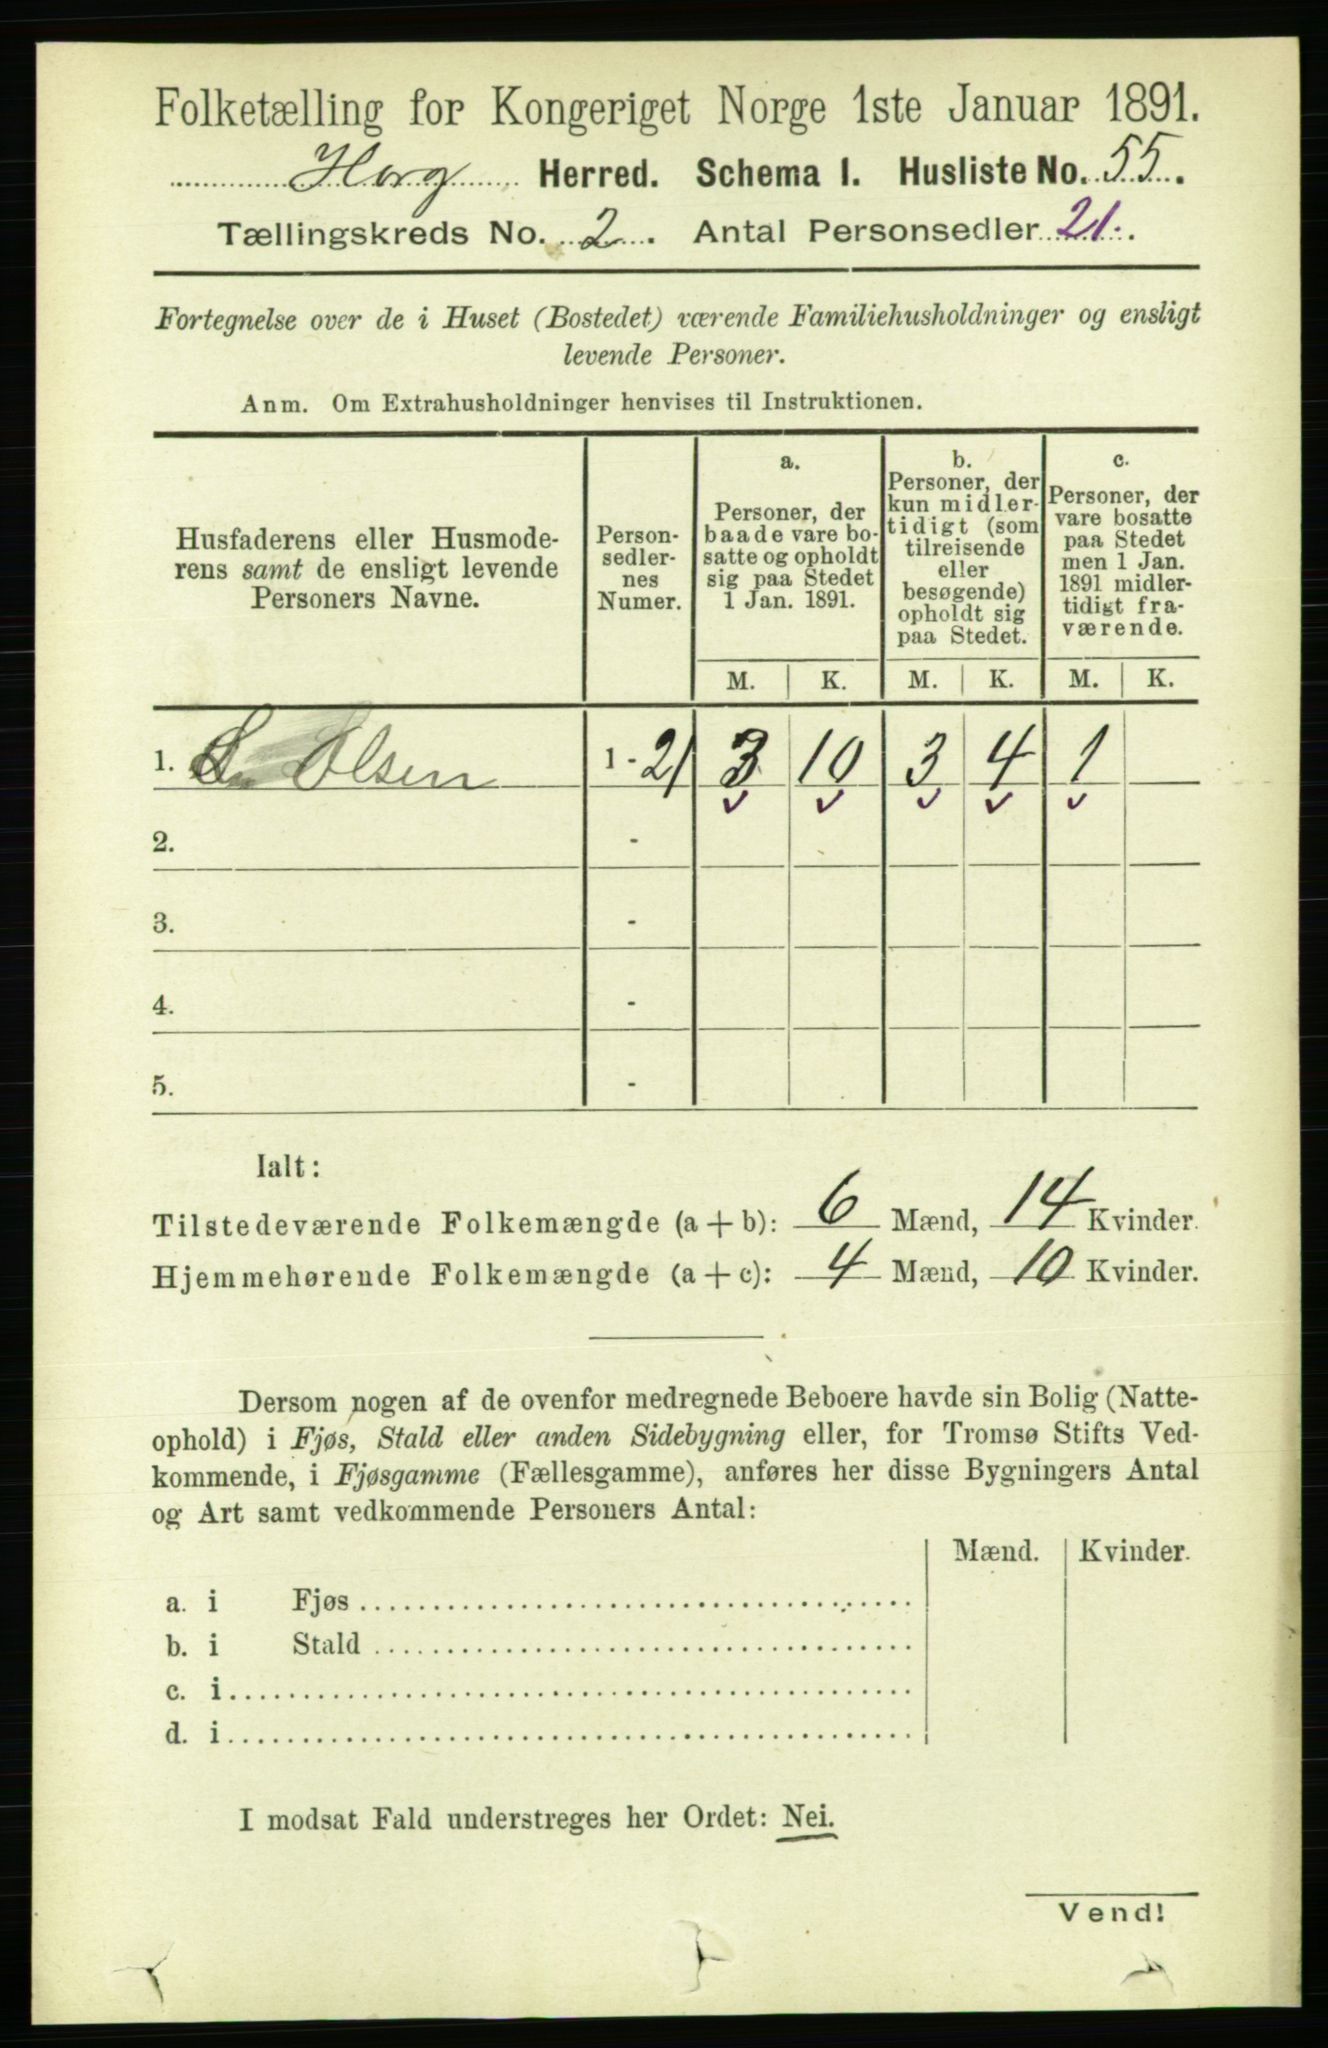 Folketælling for Kongeriget Norge 1ste Januar 1891.
Horg Herred. Schema I. Husliste No. 55.
Tællingskreds No. 2. Antal Personsedler 21.
Fortegnelse over de i Huset (Bostedet) værende Familiehusholdninger og ensligt
levende Personer.
Anm. Om Extrahusholdninger henvises til Instruktionen.
Husfaderens eller Husmode-
rens samt de ensligt levende
Personers Navne.
Person-
sedler-
nes
Numer.
a.
Personer, der
baade vare bo-
satte og opholdt
sig paa Stedet
1 Jan. 1891.
b.
Personer, der
kun midler-
tidigt (som
tilreisende
eller
besøgende)
opholdt sig
paa Stedet.
c.
Personer, der
vare bosatte
paa Stedet
men 1 Jan.
1891 midler-
tidigt fra-
værende.
M. K. M. K. M. K.
1. Olsen 1 - 21 3 10 3 4 1
2. -
3. -
4. -
5. -
Ialt:
Tilstedeværende Folkemængde (a + b): 6 Mænd, 14 Kvinder.
Hjemmehørende Folkemængde (a + c): 4 Mænd, 10 Kvinder.
Dersom nogen af de ovenfor medregnede Beboere havde sin Bolig (Natte-
ophold) i Fjøs, Stald eller anden Sidebygning eller, for Tromsø Stifts Ved-
kommende, i Fjøsgamme (Fællesgamme), anføres her disse Bygningers Antal
og Art samt vedkommende Personers Antal:
Mænd. Kvinder.
a. i Fjøs
b. i Stald
c. i
d. i
I modsat Fald understreges her Ordet: Nei.
Vend!